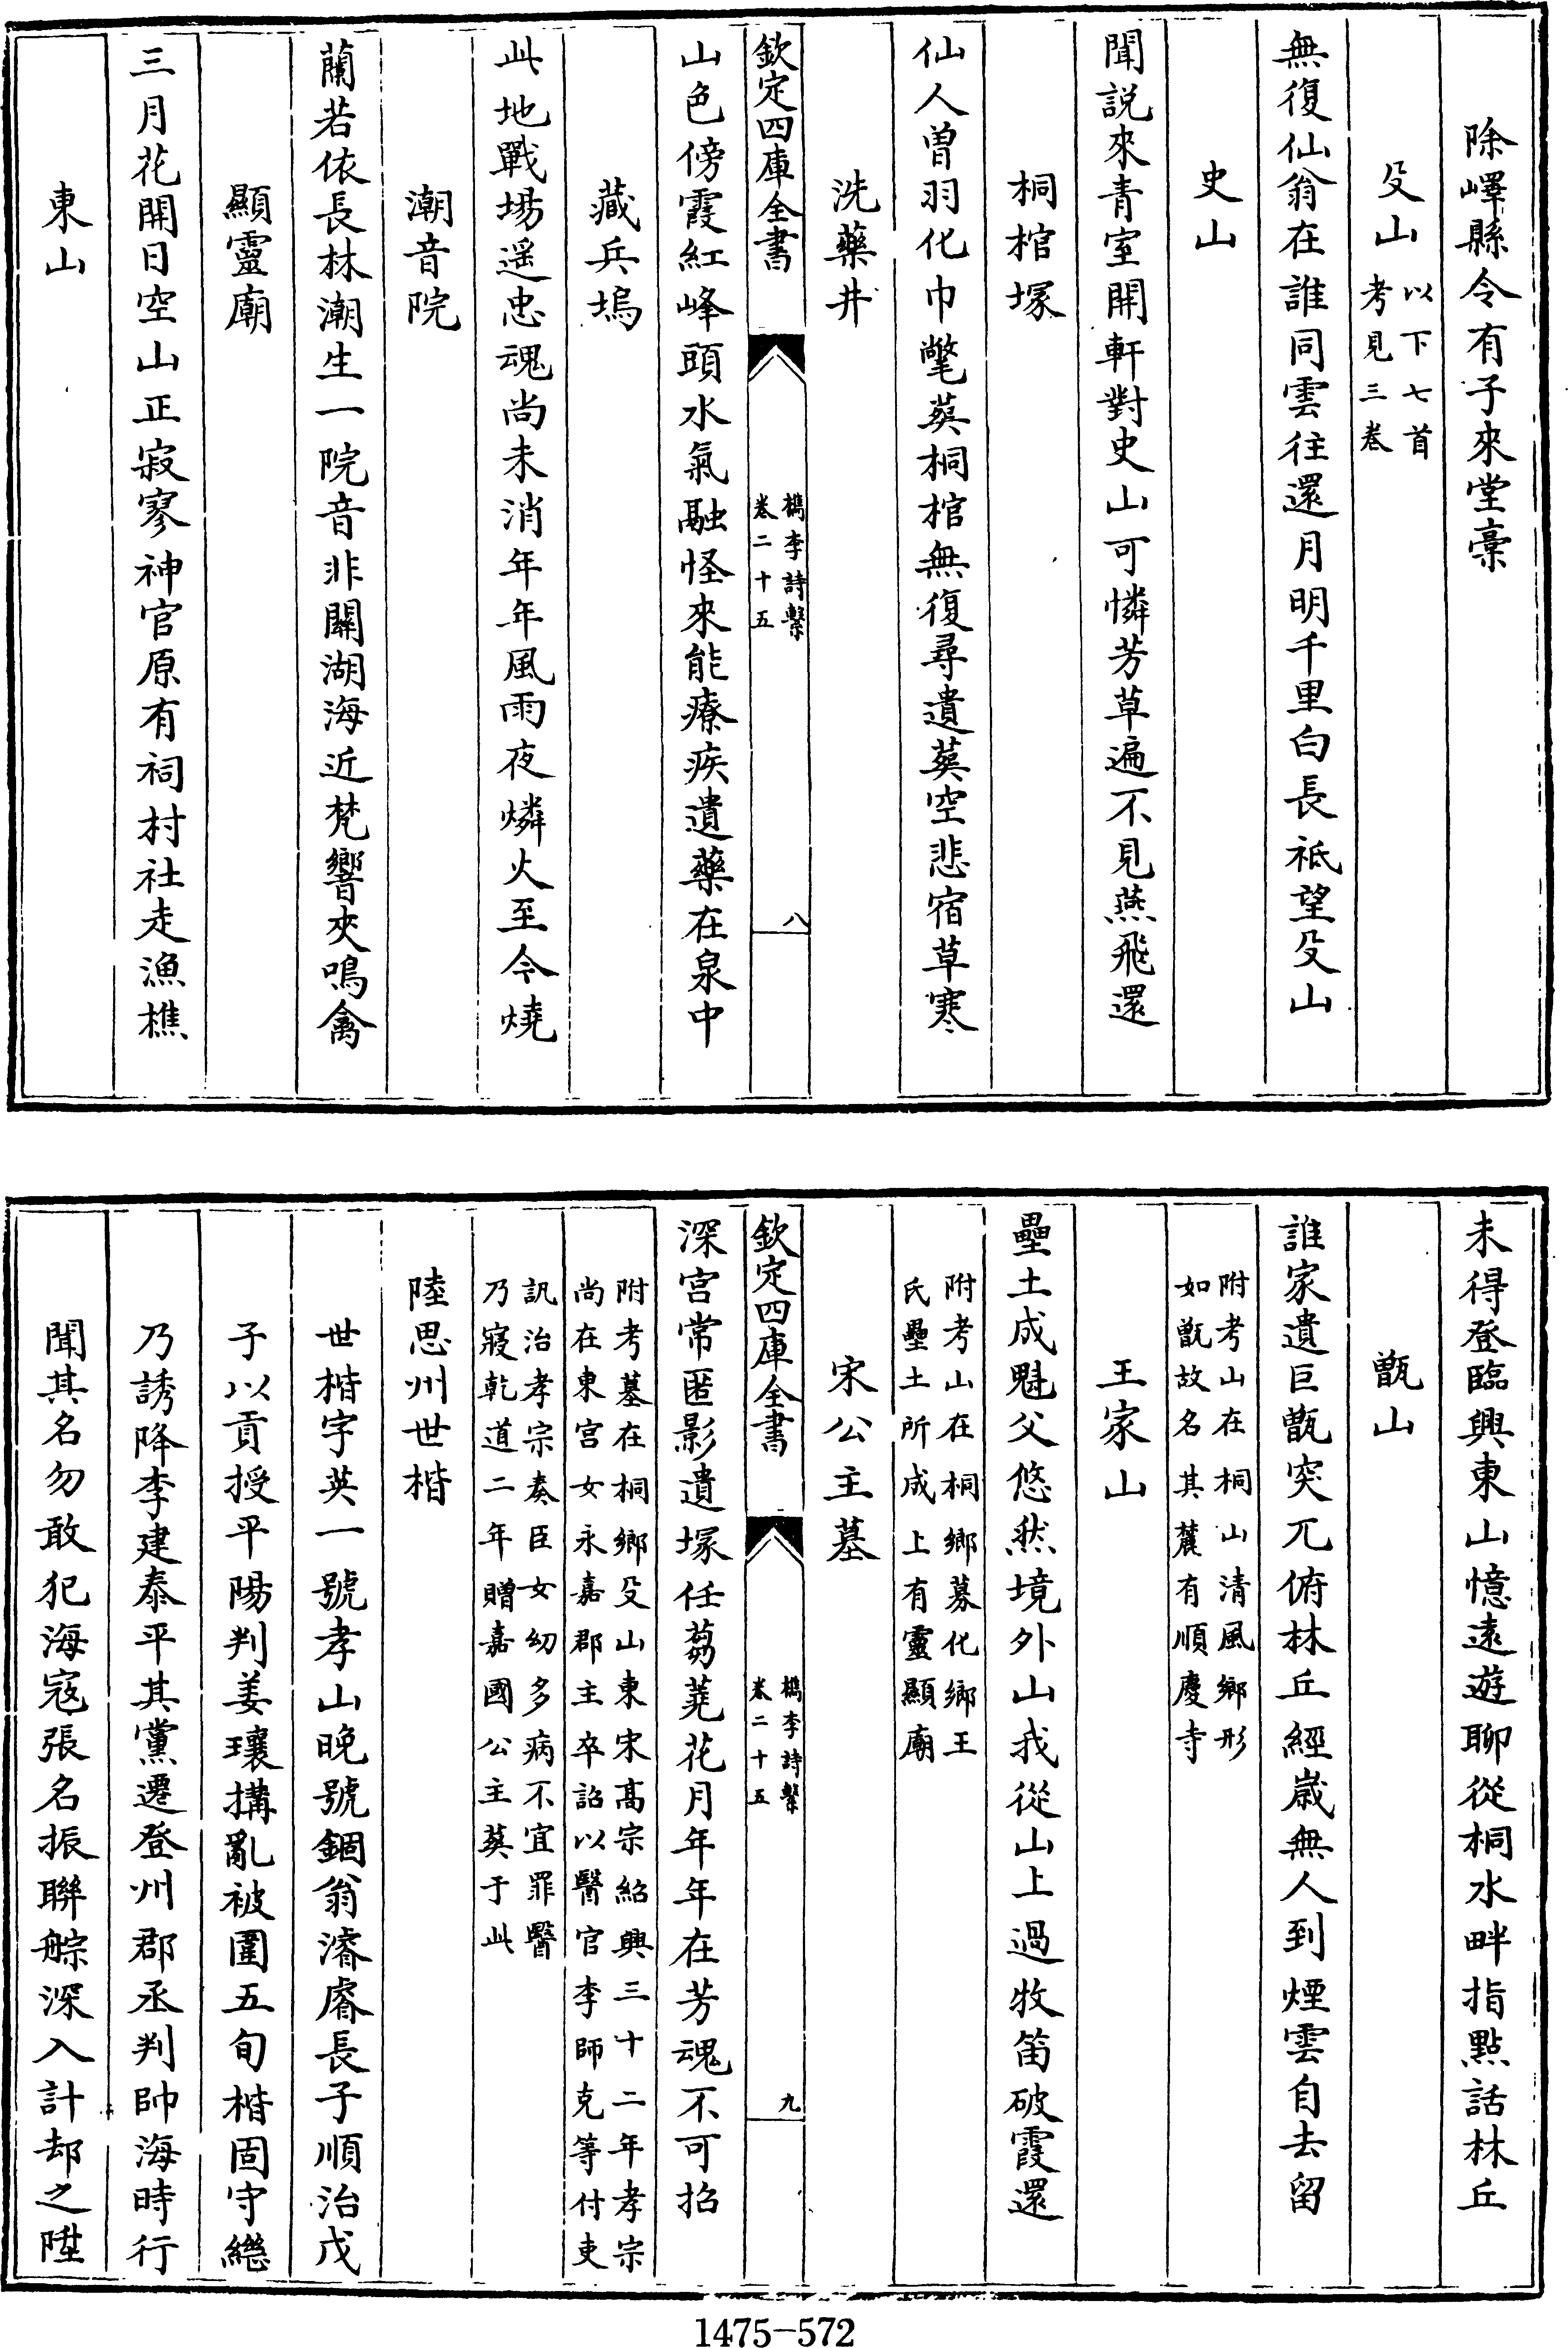 除嶧縣令有子來堂稾
殳山以下七首
考見三卷
無復仙翁在誰同雲往還月明千里白長祗望殳山
史山
聞説來青室開軒對史山可憐芳草遍不見燕飛還
桐棺塚
仙人曾羽化巾氅葬桐棺無復尋遺葬空悲宿草寒
洗藥井
欽定四庫全書
檇李詩繫
卷二十五
八
山色傍霞紅峰頭水氣融怪來能療疾遺藥在泉中
藏兵塢
此地戰場遥忠魂尚未消年年風雨夜燐火至今燒
潮音院
蘭若依長林潮生一院音非關湖海近梵響夾鳴禽
顯靈廟
三月花開日空山正寂寥神官原有祠村社走漁樵
東山
未得登臨興東山憶遠遊聊從桐水畔指點話林丘
甑山
誰家遺巨甑突兀俯林丘經嵗無人到煙雲自去留
附考山在桐山清風鄉形
如甑故名其麓有順慶寺
王家山
壘土成魁父悠然境外山我從山上過牧笛破霞還
附考山在桐鄉募化鄉王
氏壘土所成上有靈顯廟
宋公主墓
欽定四庫全書
檇李詩繫
卷二十五
九
深宫常匿影遺塚任芻蕘花月年年在芳魂不可招
附考墓在桐鄉殳山東宋髙宗紹興三十二年孝宗
尚在東宫女永嘉郡主卒詔以醫官李師克等付吏
訊治孝宗奏臣女幼多病不宜罪醫
乃寢乾道二年贈嘉國公主葬于此
陸思州世楷
世楷字英一號孝山晚號錮翁濬睿長子順治戊
子以貢授平陽判姜瓖搆亂被圍五旬楷固守繼
乃誘降李建泰平其黨遷登州郡丞判帥海時行
聞其名勿敢犯海寇張名振聯䑸深入計却之陞
1475-572